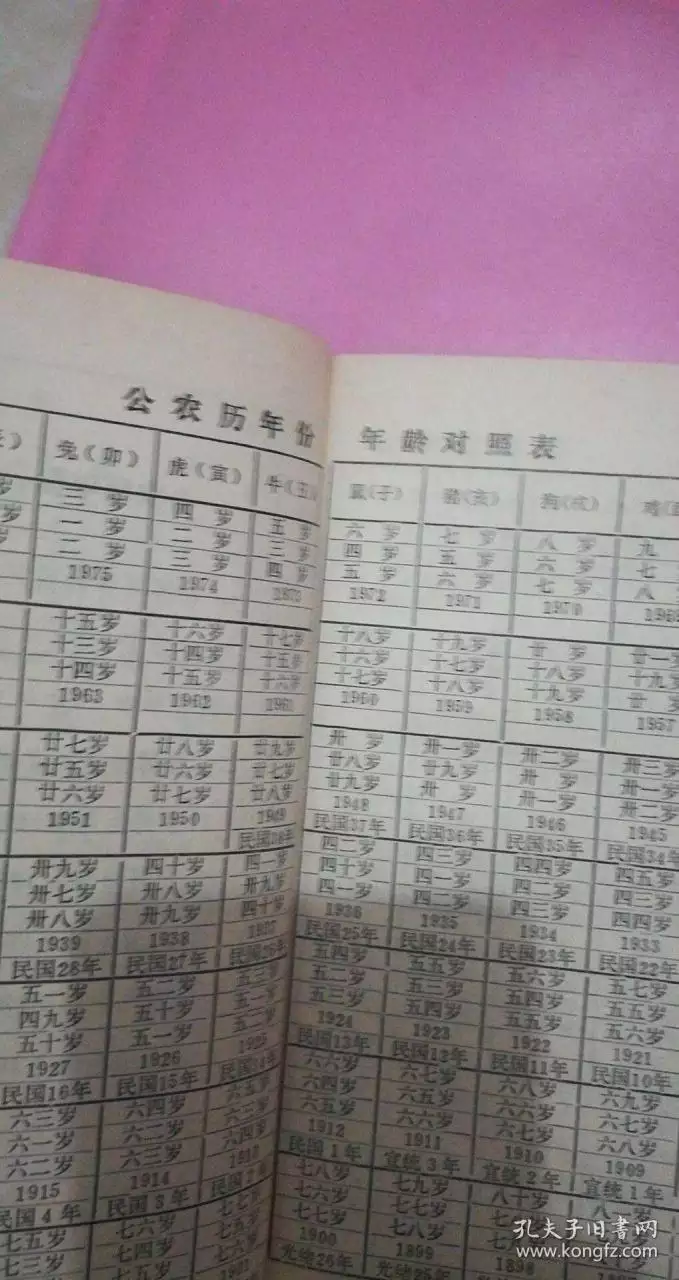 公农历年份 年龄对照表
兔（卯） 虎（寅） 牛（丑） 鼠（子） 猪（亥） 狗（戌）
三岁 四岁 五岁 六岁 七岁 八岁 九
一岁 二岁 三岁 四岁 五岁 六岁 七
二岁 三岁 四岁 五岁 六岁 七岁 八
1975 1974 1973 1972 1971 1970
十五岁 十六岁 十七岁 十八岁 十九岁 廿岁 廿一岁
十三岁 十四岁 十五岁 十六岁 十七岁 十八岁 十九岁
十四岁 十五岁 十六岁 十七岁 十八岁 十九岁 廿岁
1963 1962 1961 1960 1959 1958 1957
廿七岁 廿八岁 廿九岁 卅岁 卅一岁 卅二岁 卅三岁
廿五岁 廿六岁 廿七岁 廿八岁 廿九岁 卅岁 卅一岁
廿六岁 廿七岁 廿八岁 廿九岁 卅岁 卅一岁 卅二岁
1951 1950 1949 1948 1947 1946 1945
民国38年 民国37年 民国36年 民国35年 民国34年
卅九岁 四十岁 四一岁 四二岁 四三岁 四四岁 四五岁
卅七岁 卅八岁 卅九岁 四十岁 四一岁 四二岁 四三岁
卅八岁 卅九岁 四十岁 四一岁 四二岁 四三岁 四四岁
1939 1938 1937 1936 1935 1934 1933
民国28年 民国27年 民国26年 民国25年 民国24年 民国23年 民国22年
五一岁 五二岁 五三岁 五四岁 五五岁 五六岁 五七岁
四九岁 五十岁 五一岁 五二岁 五三岁 五四岁 五五岁
五十岁 五一岁 五二岁 五三岁 五四岁 五五岁 五六岁
1927 1926 1925 1924 1923 1922 1921
民国16年 民国15年 民国14年 民国13年 民国12年 民国11年 民国10年
六三岁 六四岁 六五岁 六六岁 六七岁 六八岁 六九岁
六一岁 六二岁 六三岁 六四岁 六五岁 六六岁 六七岁
六二岁 六三岁 六四岁 六五岁 六六岁 六七岁 六八岁
1915 1914 1913 1912 1911 1910 1909
民国4年 民国3年 民国2年 民国1年 宣统3年 宣统2年 宣统1年
七五岁 七六岁 七七岁 七八岁 七九岁 八十岁 八一岁
七三岁 七四岁 七五岁 七六岁 七七岁
七七岁 七八岁
1900 1899 1898
光绪26年 光绪25年
孔夫子旧书网
www.kongfz.com